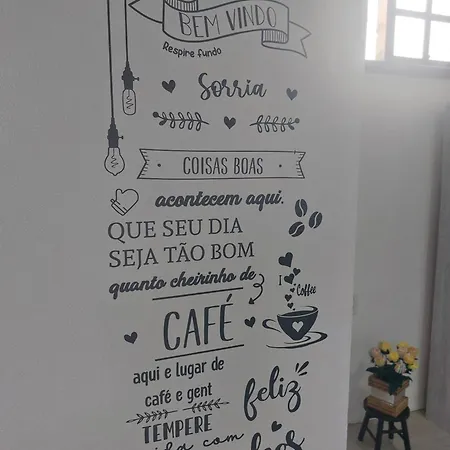 BEM VINDO
Respire fundo
Sorria
COISAS BOAS
acontecem aqui.
QUE SEU DIA
SEJA TÃO BOM
quanto cheirinho de
CAFÉ
I
Coffee
aqui e lugar de
café e gent
feliz
TEMPERE
com